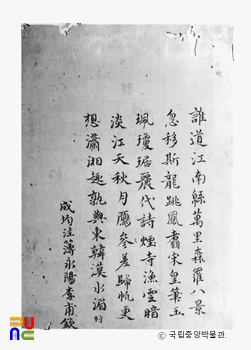 誰道江南縣萬里森羅八景
忽移斯龍跳鳳翥宋皇筆玉
珮瓊琚麗代詩煙寺漁雲暗
淡江天秋月鴈參差歸帆更
想瀟湘趣孰與東韓漢水湄
成均注簿永陽李甫欽
© 국립중앙박물관.